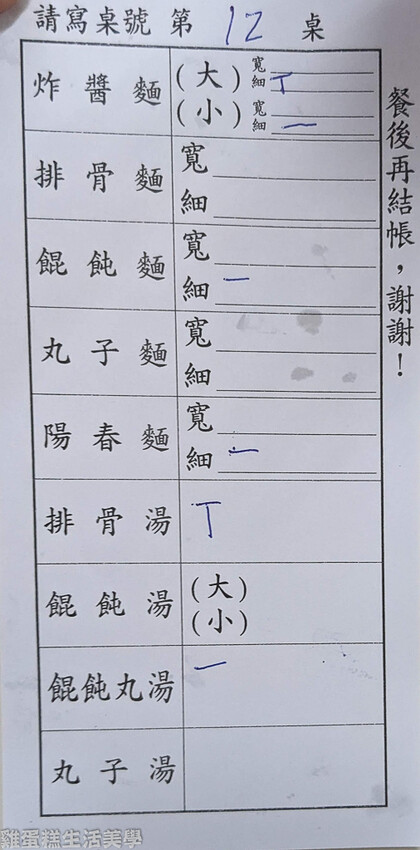 請寫桌號 第 12 桌
炸醬麵 (大) 寬
細 丅
(小) 寬
細 一
排骨麵 寬
細
餛飩麵 寬
細 一
丸子麵 寬
細
陽春麵 寬
細 一
排骨湯 丅
餛飩湯 (大)
(小)
餛飩丸湯 一
丸子湯
餐後再結帳，謝謝！
雞蛋糕生活美學